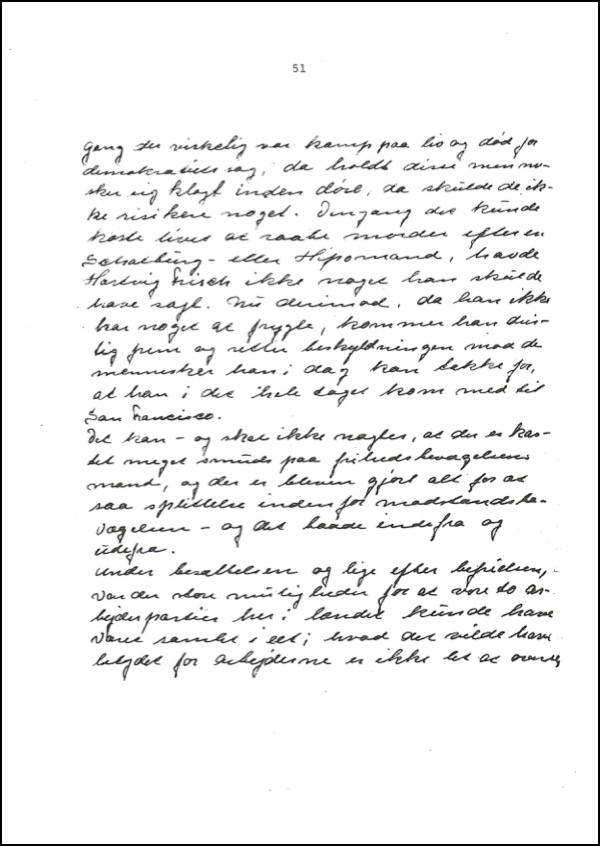 51
gang der virkelig var kamp paa liv og død for
demokratiets sag, da holdt disse menne-
sker sig klogt inden døre, da skulde de ik-
ke risikere noget. Dengang det kunde
koste livet at raabe morder efter en
Schalburg- eller Hipomand, havde
Hartvig Frisch ikke noget han skulde
have sagt. Nu derimod, da han ikke
har noget at frygte, kommer han dris-
tig frem og retter beskyldningen mod de
mennesker han i dag kan takke for,
at han i det hele taget kom med til
San Francisco.
Det kan - og skal ikke nægtes, at der er kas-
tet meget smuds paa frihedsbevægelsens
mænd, og der er bleven gjort alt for at
saa splittelse inden for modstandsbe-
vægelsen - og det baade indefra og
udefra.
Under besættelsen og lige efter befrielsen,
var der store muligheder for at vore to ar-
bejderpartier her i landet kunde have
været samlet i eet; hvad det vilde have
betydet for arbejderne er ikke let at